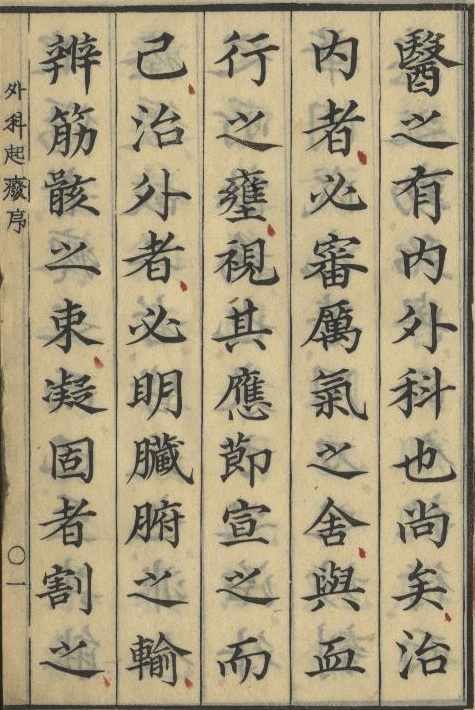 醫之有内外科也尚矣治
内者必審厲氣之舍與血
行之壅視其應節宣之而
已治外者必明臟腑之輸
辨筋骸之束凝固者割之
外科起癈序
〇一